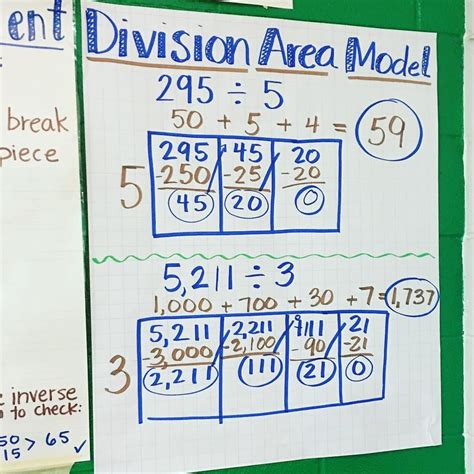 ent
break
piece
inverse
to check:
50 > 65 ✓
15
Division Area Model
295 ÷ 5
50 + 5 + 4 = 59
5
295 45 20
-250 -25 -20
45 20 0
5,211 ÷ 3
1,000 + 700 + 30 + 7 = 1,737
3
5,211 2,211 111 21
-3,000 -2,100 -90 -21
2,211 111 21 0